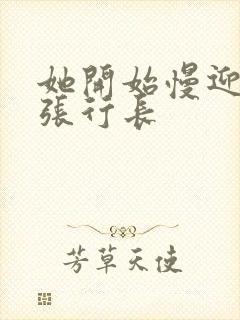 她開始慢迎
張行長
芳草天使